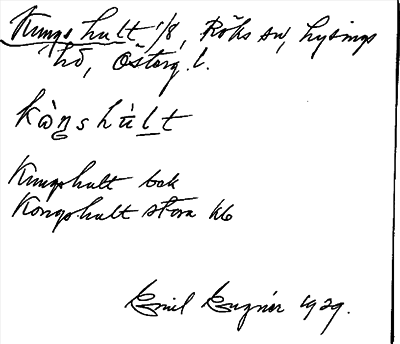 Kungshult 1/8, Röks sn, Lysings
hd, Österg. l.
kàŋshúlt
Kungshult bok
Kongshult stora kb
Emil 1929.